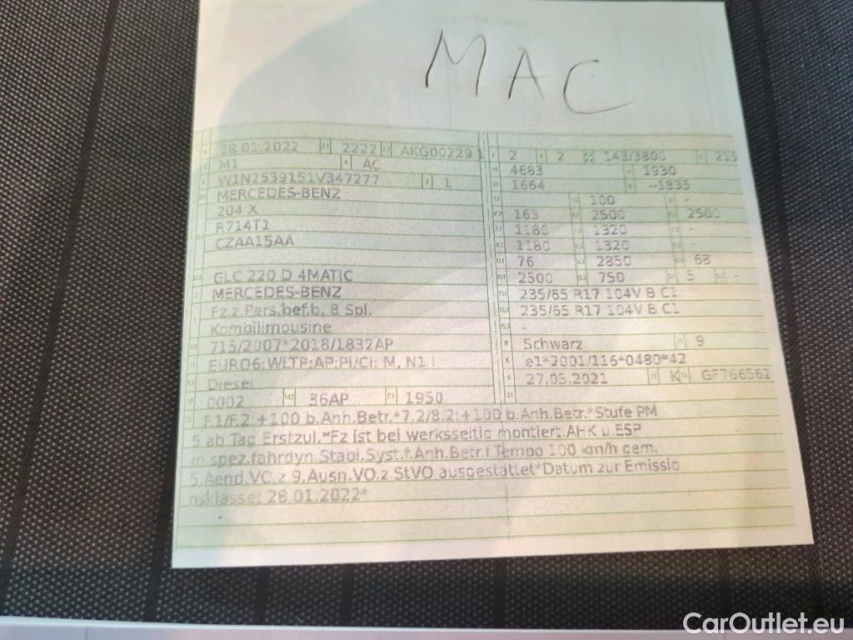 MAC
28.01.2022 2222 AKG00229 2 2 143/3800 215
M1 AC 4663 1930
W1N2539151V347277 1 1664 -1835
MERCEDES-BENZ 100 -
204 X 163 2500 2500
R714T1 1180 1320 -
CZAA15AA 1180 1320 -
76 2850 68
GLC 220 D 4MATIC 2500 750 5 -
MERCEDES-BENZ 235/65 R17 104V B C1
Fz.z.Pers.bef.b. 8 Spl. 235/65 R17 104V B C1
Kombilimousine -
715/2007*2018/1832AP Schwarz 9
EURO6;WLTP;AP;PI/CI; M, N1 I e1*2001/116*0480*42
Diesel 27.05.2021 K GF766562
0002 36AP 1950
F.1/F.2:+100 b.Anh.Betr.*7.2/8.2:+100 b.Anh.Betr.*Stufe PM
5 ab Tag Erstzul.*Fz ist bei werksseitig montiert.AHK u.ESP
m.spez.fahrdyn.Stabi.Syst.f.Anh.Betr.f.Tempo 100 km/h gem.
5.Aend.VO.z.9.Ausn.VO.z StVO ausgestattet*Datum zur Emissio
nsklasse: 28.01.2022*
CarOutlet.eu